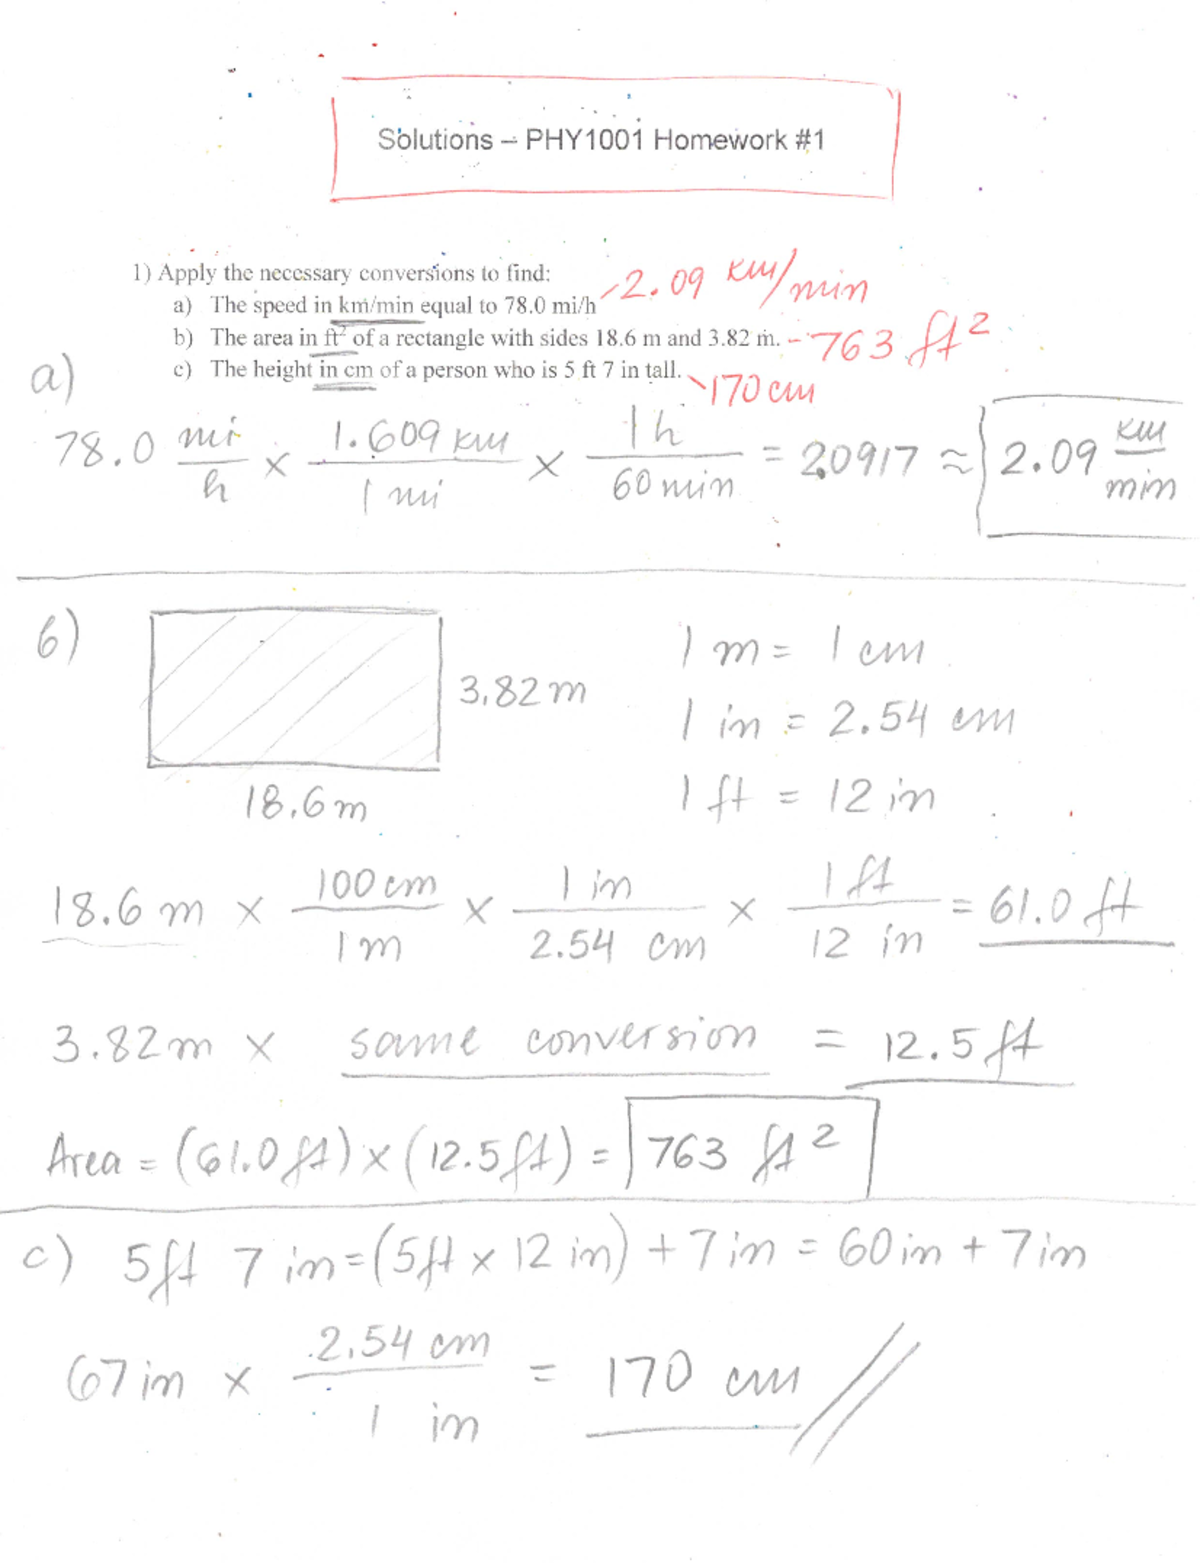 Solutions – PHY1001 Homework #1
1) Apply the necessary conversions to find:
a) The speed in km/min equal to 78.0 mi/h - 2.09 km/min
b) The area in ft² of a rectangle with sides 18.6 m and 3.82 m. - 763 ft²
c) The height in cm of a person who is 5 ft 7 in tall. - 170 cm
a)
78.0 mi/h × 1.609 km/1 mi × 1 h/60 min = 2.0917 ≈ 2.09 km/min
b)
3.82 m
18.6 m
1 m = 1 cm
1 in = 2.54 cm
1 ft = 12 in
18.6 m × 100 cm/1 m × 1 in/2.54 cm × 1 ft/12 in = 61.0 ft
3.82 m × same conversion = 12.5 ft
Area = (61.0 ft) × (12.5 ft) = 763 ft²
c) 5 ft 7 in = (5 ft × 12 in) + 7 in = 60 in + 7 in
67 in × 2.54 cm/1 in = 170 cm